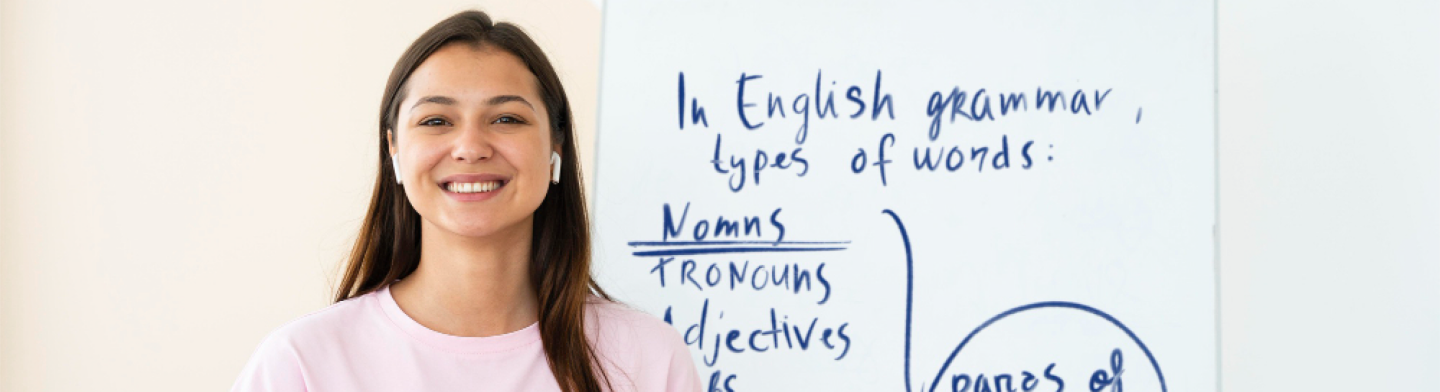 In English grammar,
types of words:
Nomns
PRONOUNS
Adjectives
parts of